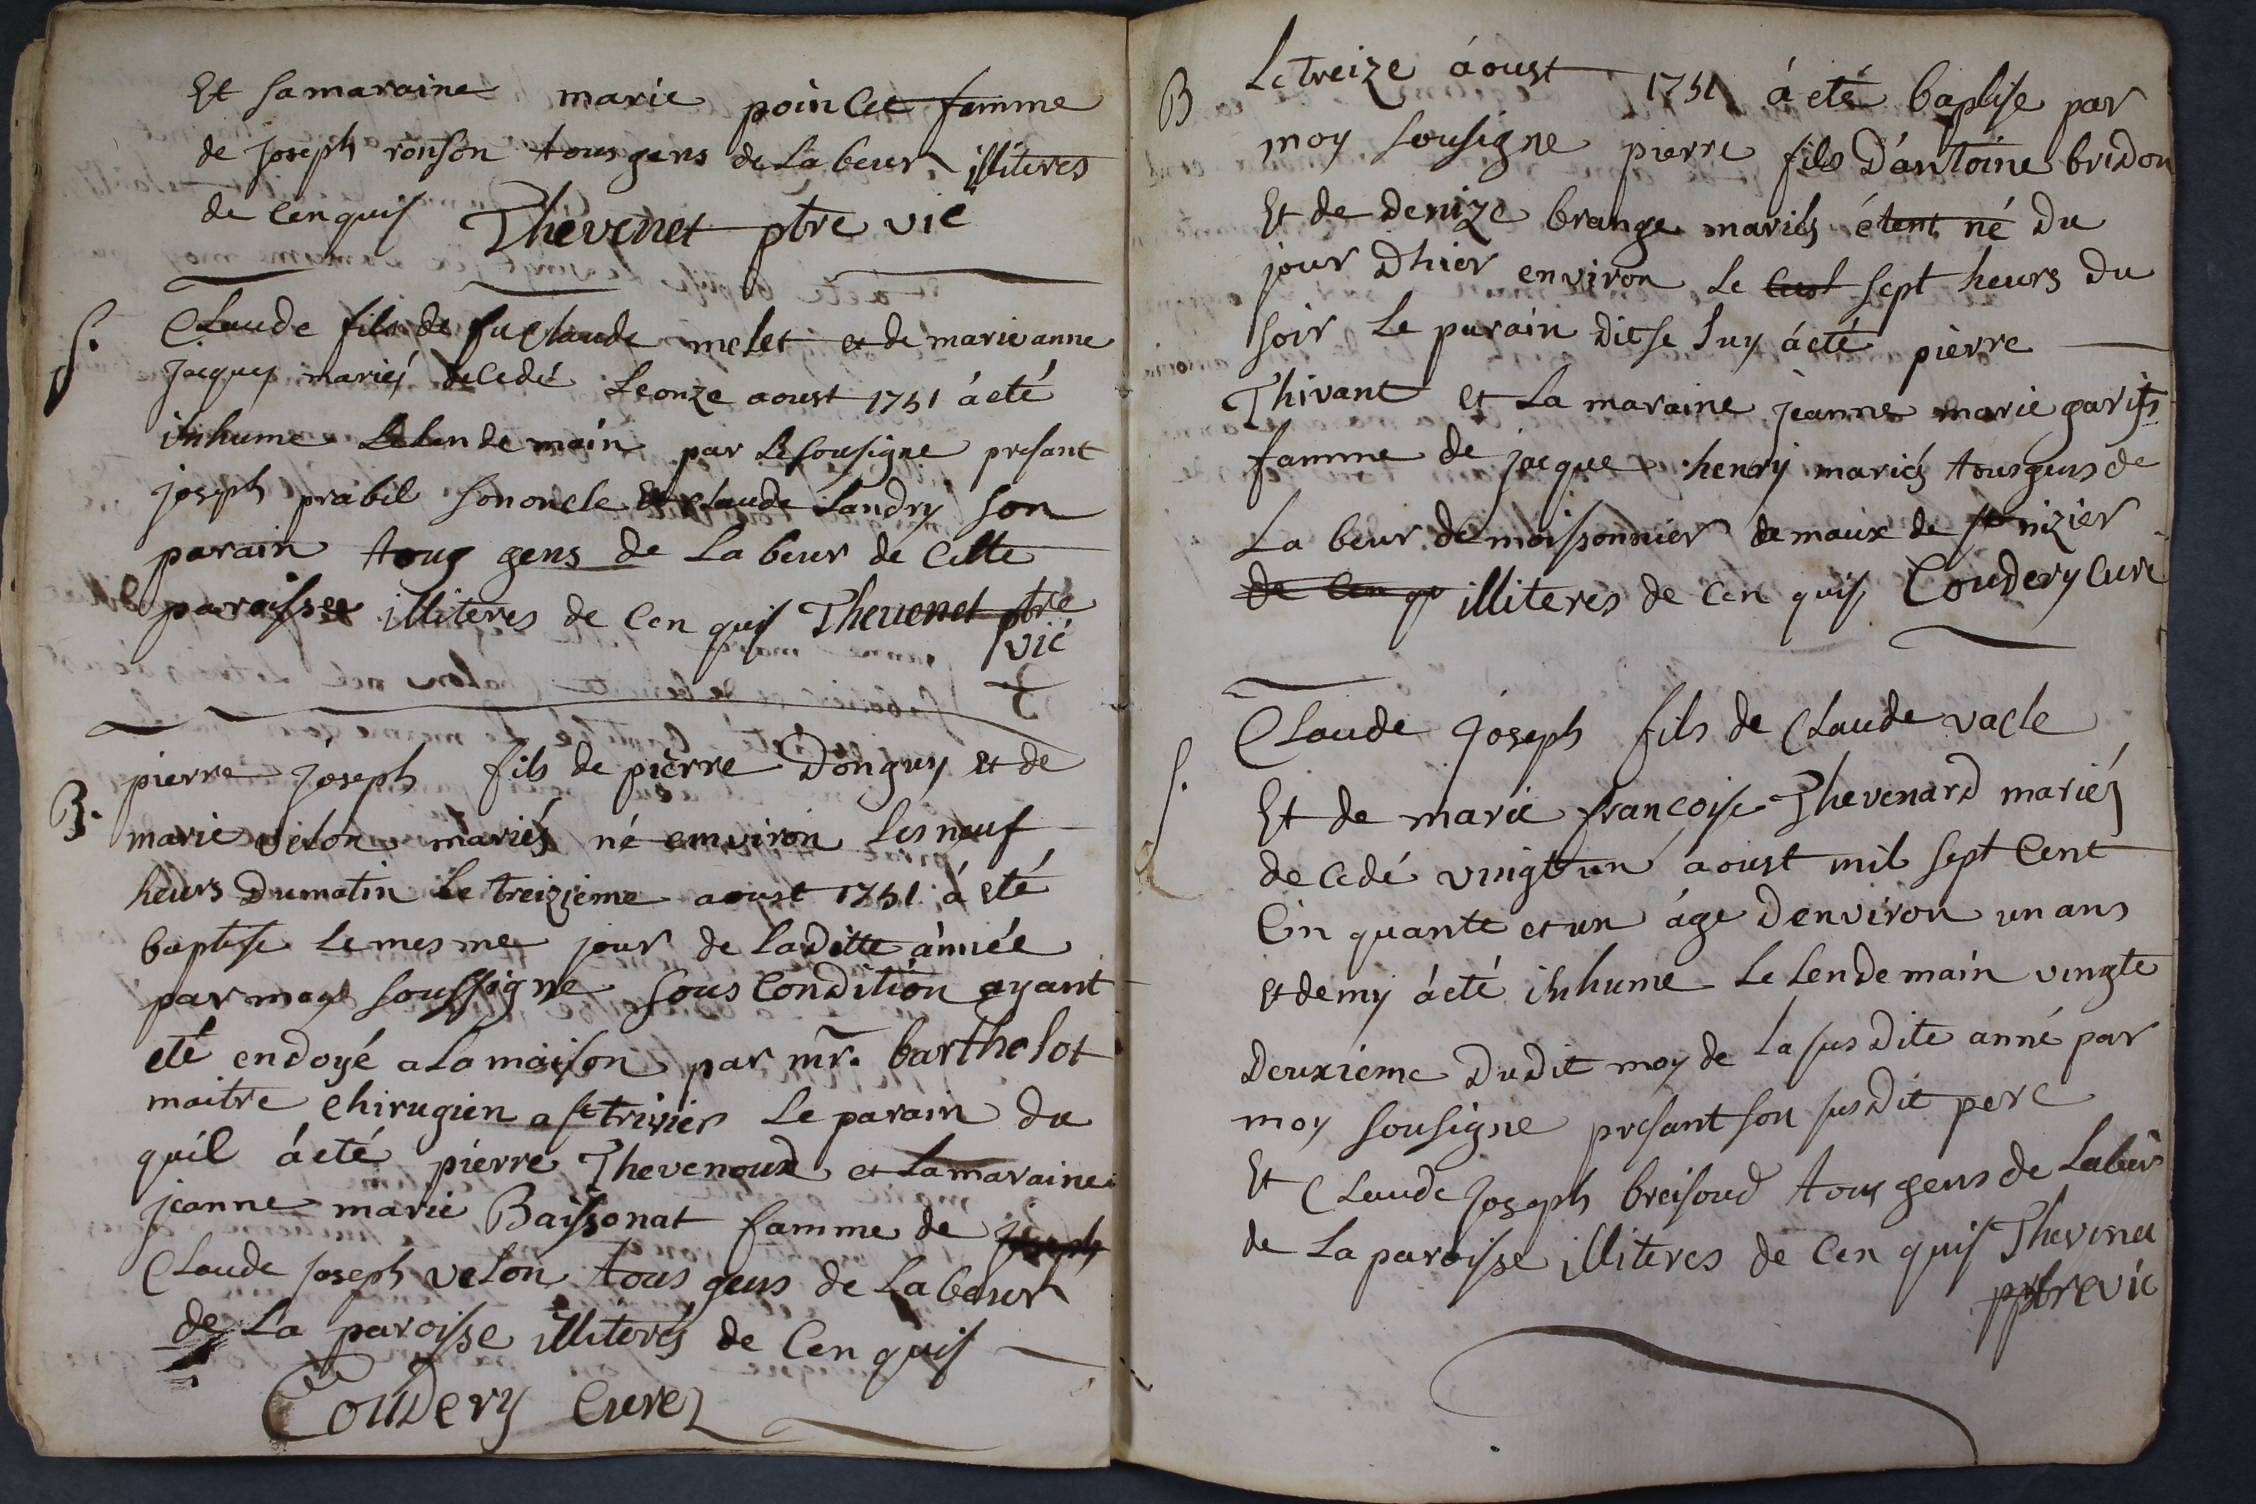 Et sa maraine marie poincet famme
de joseph ronson tous gens de labeur illiteres
de cen quis Thevenet ptre vic
S.
Claude fils de fu claude melet et de marie anne
jacques mariés decedé le onze aoust 1751 á eté
inhume le lendemain par le sousigne presant
joseph prabil son oncle et claude Landry son
parain tous gens de labeur de cette
paroisse illiteres de cen quis Thevenet ptre
vic
B.
pierre joseph fils de pierre Donguy et de
marie velon mariés né emviron les neuf
heurs du matin le treizieme aoust 1751 á eté
baptise le mesme jour de laditte année
par moy soussigne sous condition ayant
eté endoyé a la maison par mr. barthelot
maitre chirugien a st trivier le parain du
quil á eté pierre Thevenoud et la maraine
jeanne marie Baissonat famme de joseph
Claude joseph velon tous gens de labeur
de la paroisse illiterés de cen quis
Coudery Curez
B
Le treize áoust 1751 á eté baptise par
moy sousigne pierre fils d'antoine bridon
Et de denize brange mariés étent né du
jour dhier environ le sept heurs du
soir le parain ditse luy á eté pierre
Thivant et la maraine jeanne marie garits
famme de jacque henry mariés tous gens de
La beur de moissonnier demaux de st nizier
de cen qu illiteres de cen quis Coudery Cure
S.
Claude joseph fils de Claude vacle
Et de marie francoise Thevenard mariés
decedé vingt un aoust mil sept cent
cinquante et un áge denviron un ans
et demy á eté inhume le lendemain vingte
deuxieme dudit moy de la susdite anné par
moy sousigne presant son susdit pere
Et Claude joseph breisoud tous gens de labeur
de la paroisse illiteres de cen quis Thevenet
pptre vic